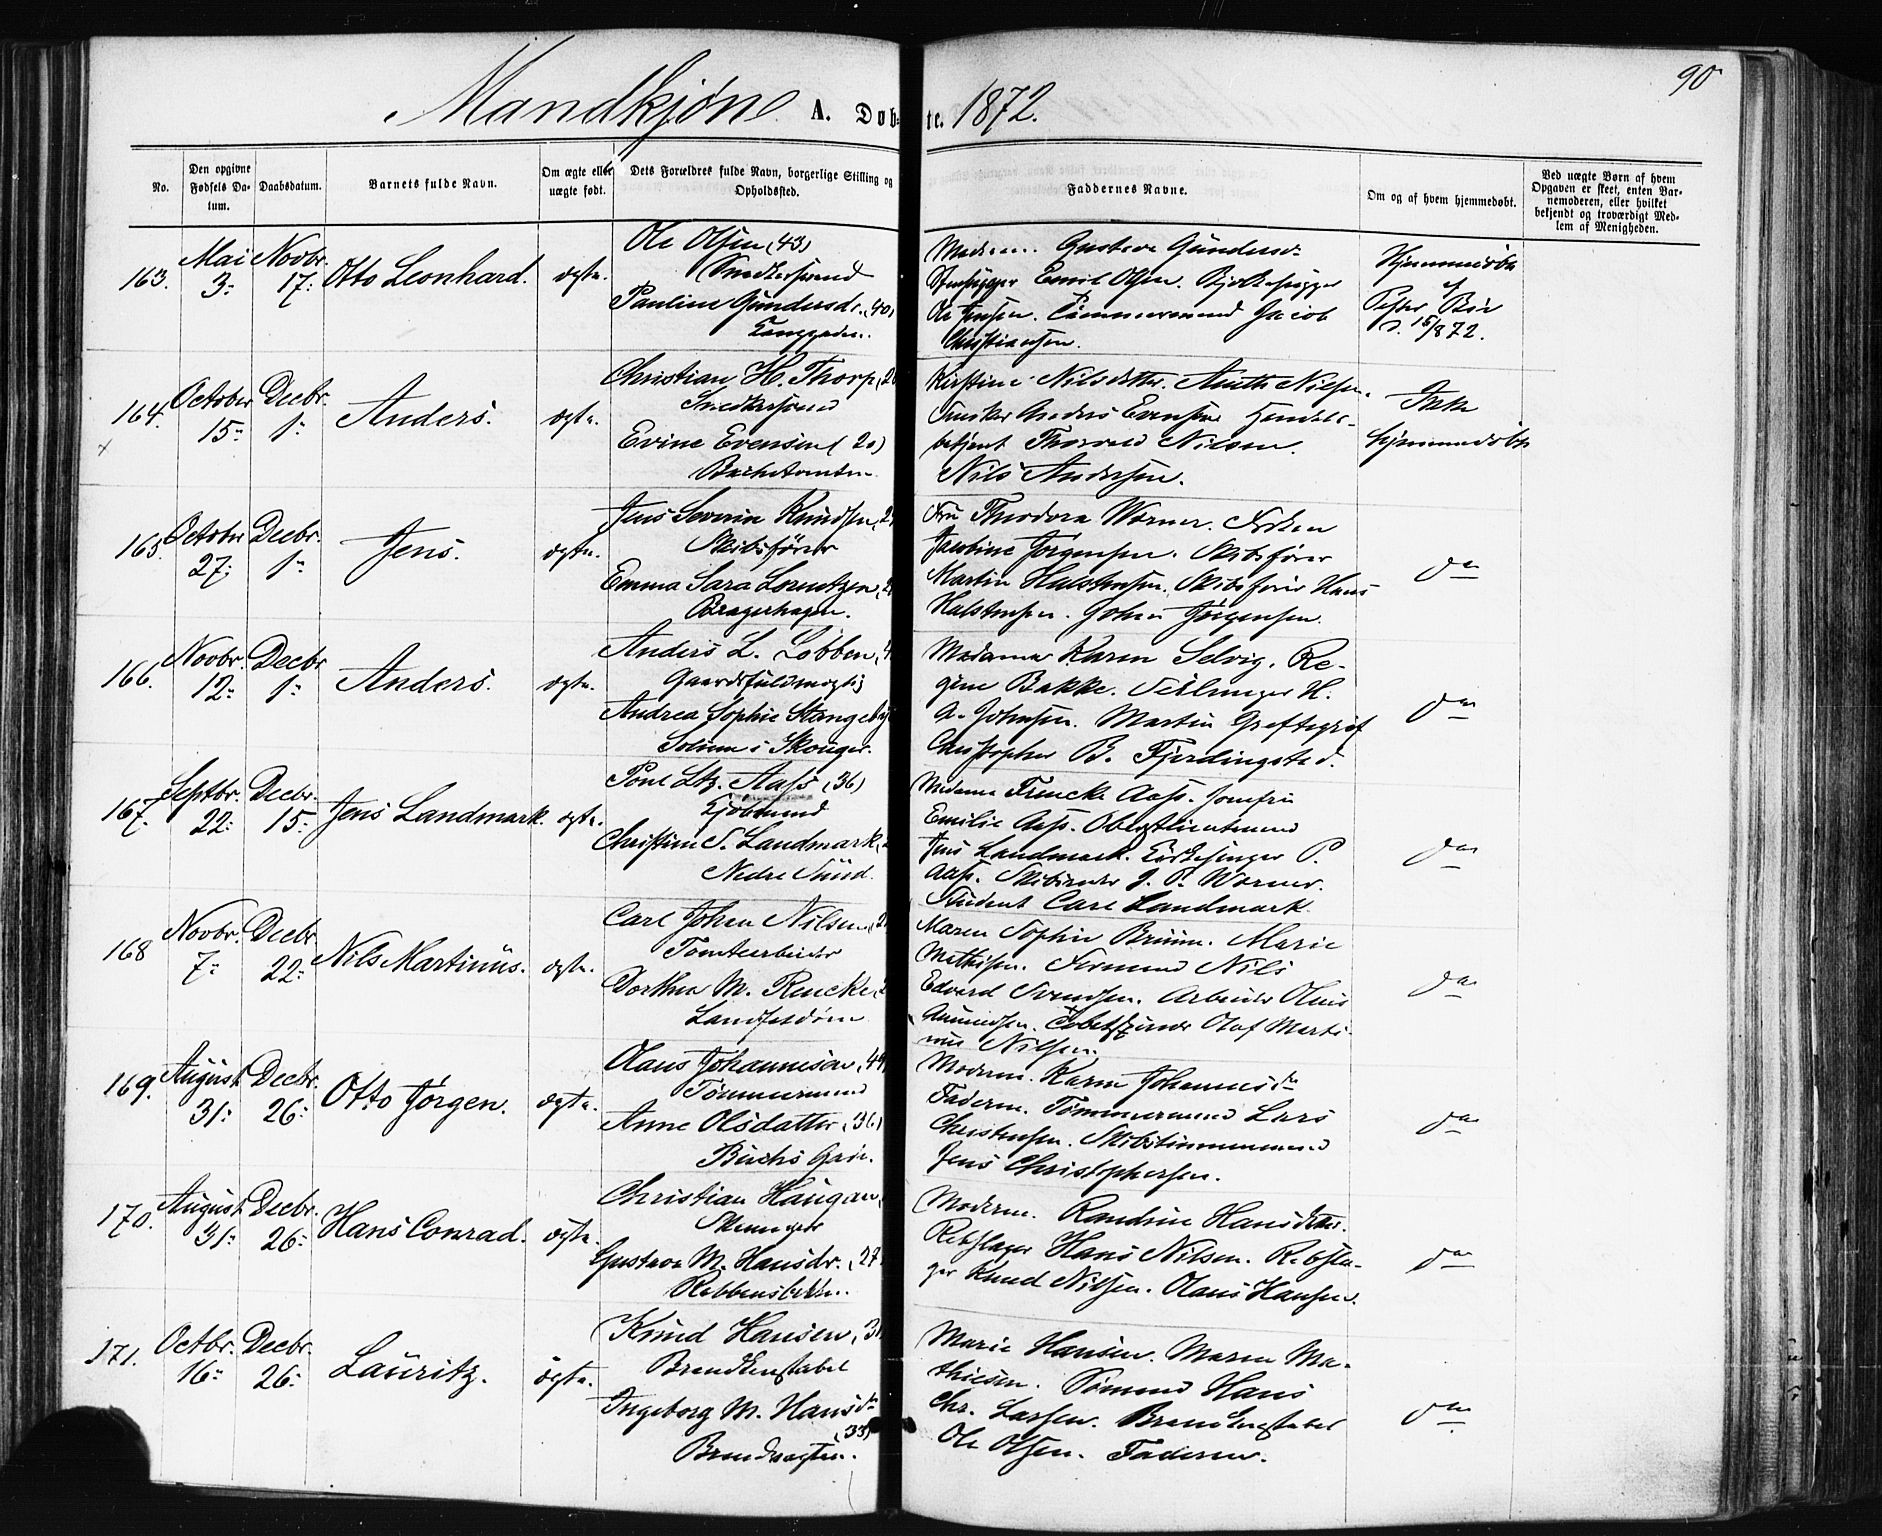 90
Mandkjøn. A. Døb- te. 1872.
No. | Den opgivne Fødsels Datum. | Daabsdatum. | Barnets fulde Navn. | Om ægte eller uægte født. | Dets Forældres fulde Navn, borgerlige Stilling og Opholdssted. | Faddernes Navne. | Om og af hvem hjemmedøbt. | Ved uægte Børn af hvem Opgaven er skeet, enten Barnemoderen, eller hvilket bekjendt og troværdigt Medlem af Menigheden.
163. Mai 3: Novbr. 17: Otto Leonhard. ægte.
Ole Olsen (43)
Snedkersvend
Pauline Gundersdr. (40)
Langgaden.
Moderen. Gustava Gundersdr
Stenhugger Emil Olsen.
Ole Jensen. Tømmermand Jacob
Christiansen.
Hjemmedøbt
af
Bie
d. 15/8 72.
164. October 15: Decbr. 1: Anders. ægte.
Christian H. Thorp
Snedkersvend
Evine Evensen (20)
Kirstine Nilsdatter. Nilsen.
Anders Evensen Handels-
betjent Thorvald Nilsen.
Nils Andersen.
Ikke
hjemmedøbt
165. October 27: Decbr. 1: Jens. ægte.
Jens Severin Knudsen
Skibsfører
Emma Sara Lorentzen
Bragerhagen.
Fru Theodora Wörner. Frøken
Jacobine Jørgensen. Skibsfører
Martin Halstensen. Skibsfører Hans
Halstensen. Johan Jørgensen.
do
166. Novbr. 12: Decbr 1: Anders. ægte.
Anders L. Løbben
Gaardsfuldmægtig
Andrea Sophie Stangeby
Solum i Skouger.
Madame Karen Selvig. Re-
gine Bakke. H.
A. Johnsen. Martin Grefsgrøf
Christopher B. Fjerdingstad.
do
167. Septbr. 22: Decbr. 15: Jens Landmark. ægte.
Poul Ltz. Aass (36)
Kjøbmand
Christine S. Landmark
Nedre Sund.
Madame Aass. Jomfru
Emilie Aass. Oberstlieutenant
Jens Landmark. Kirkesanger P.
Aass. Skibsreder J. P. Wörner.
Student Carl Landmark.
do
168 Novbr. 7: Decbr 22: Nils Martinus. ægte.
Carl Johan Nilsen
Tomtearbeider
Dorthea M. Rencke
Landfaldøen
Maren Sophie Bruun. Marie
Mathisen. Sømand Nils
Edvard Svendsen. Arbeider Olaus
Amundsen. Olaf Marti-
nus Nilsen.
do
169. August 31: Decbr. 26: Otto Jørgen. ægte.
Olaus Johannesen
Tømmermand
Anne Olsdatter (36)
Buchs Gade.
Moderen. Karen Johannesdtr
Faderen. Tømmermand Lars
Christensen. Skibstømmermand
Jens Christophersen.
do
170. August 31: Decbr. 26: Hans Conrad. ægte.
Christian Haugan
Gustava M. Hansdr. (27
Robbensbakken.
Moderen. Randine Hansdatter.
Rebslager Hans Nilsen. Rebsla-
ger Knud Nilsen. Olaus Hansen.
do
171. Octbr. 16: Decbr. 26: Lauritz. ægte.
Knud Hansen
Brandkonstabel
Ingeborg M. Hansdtr
(33)
Brandvagten.
Marie Hansen. Maren Ma-
thiesen. Sømand Hans
Chr. Larsen. Brandkonstabel
Ole Olsen. Faderen.
do